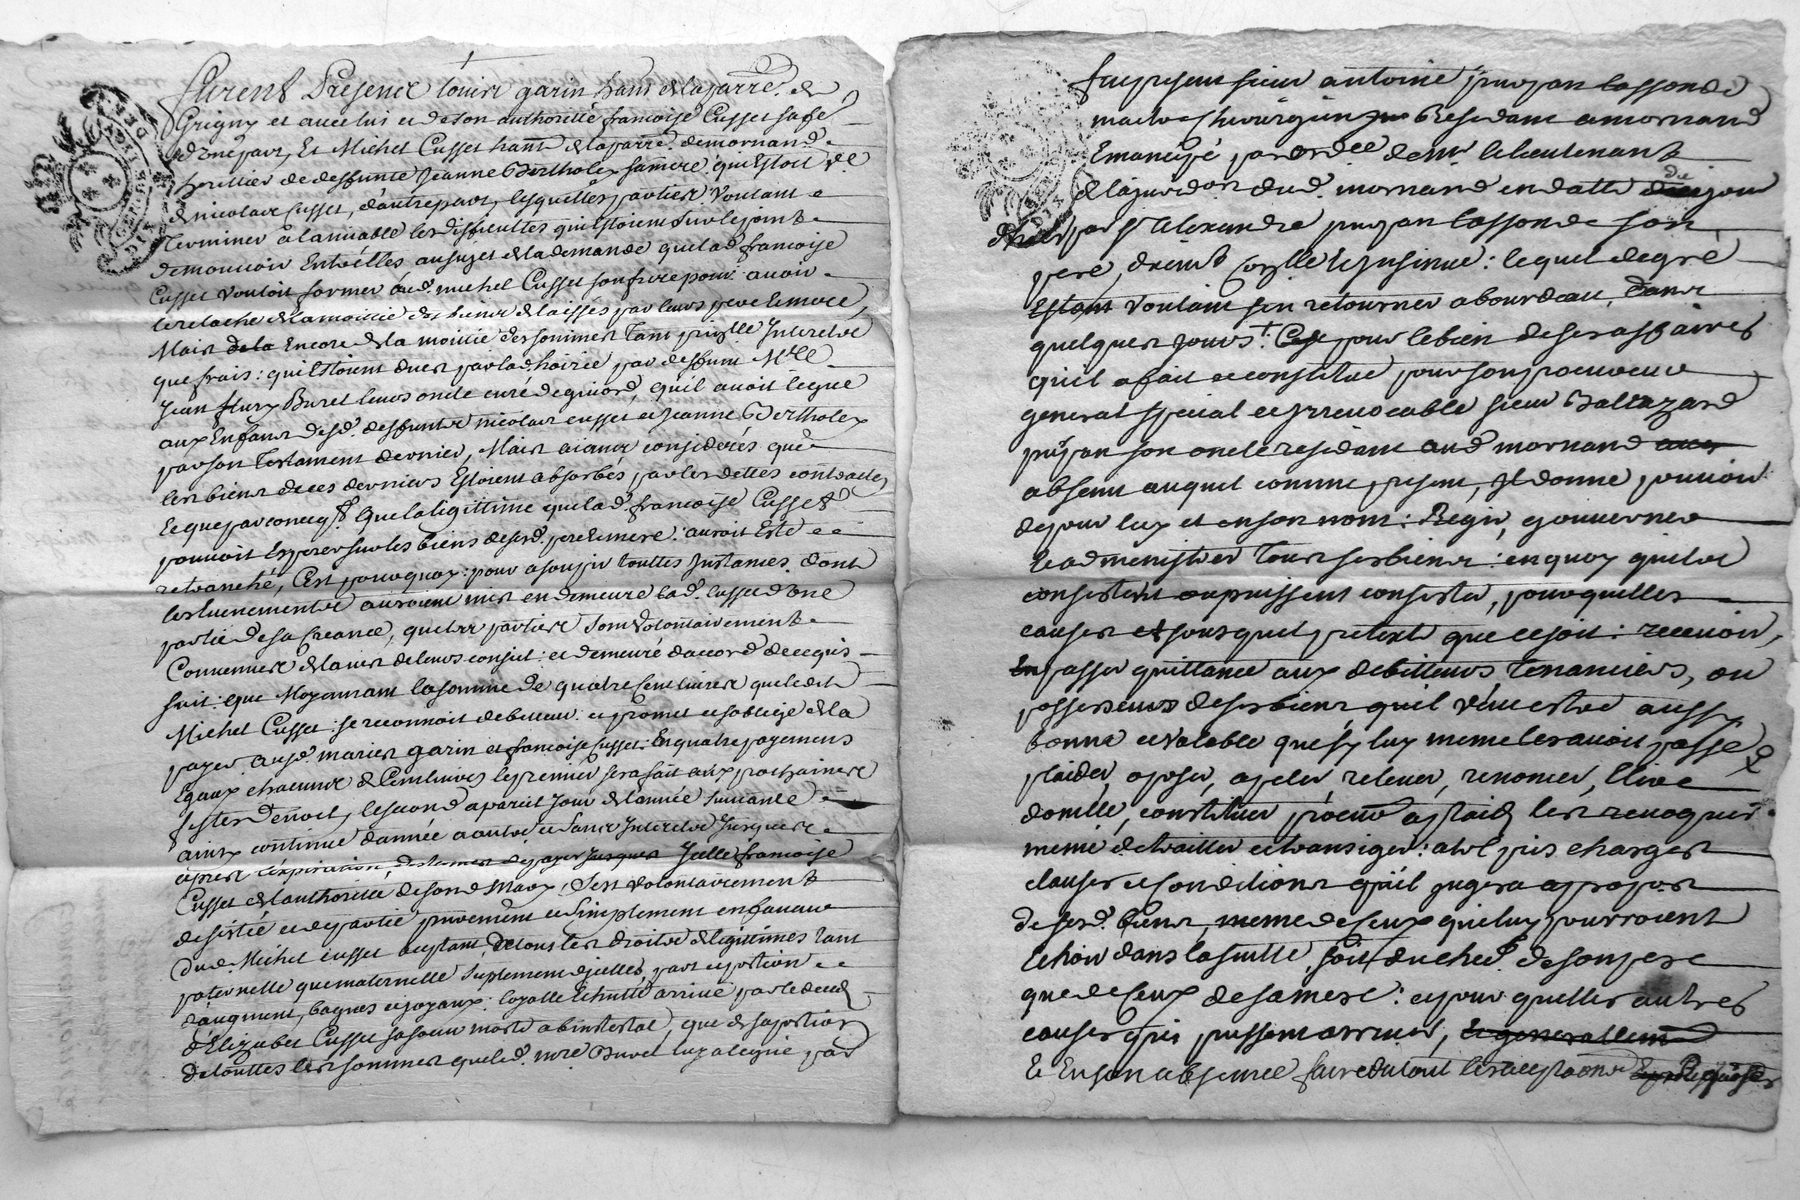 furent Presents louis garin habt de la parre. de
Grigny et avec luy et de son authorité francoise Cusset sa fe
d'une part, Et Michel Cusset habt de la parre. de mornand
heritier de deffunte Jeanne Bertholex sa mere. qu'Estoit Ve
de nicolas Cusset, d'autre part, lesquelles parties Voulant
Terminer a l'amiable les difficultes qui Estoient sur le point
de mouvoir Entr'elles au sujet de la demande que lad. francoise
Cusset vouloit former aud. michel Cusset son frere pour avoir
le relache de la moitié des biens delaissés par leurs pere et mere,
Mais Encore de la moitié des sommes Tant prin.lle Interets
que frais: qui Estoient dues par lad. hoirie par deffunt Mre
Jean Buret leurs oncle curé de, qu'il avoit legué
aux Enfans desd. deffunts nicolas cusset et Jeanne Bertholex
par son Testament dernier, Mais aiant considerés que
les biens de ces derniers Estoient absorbés par les dettes contractes
Et que par conceqt. Que la ligittime que lad. francoise Cusset
pouvoit Esperer sur les biens desd. pere et mere: auroit Esté
retranché, C'est pourquoy: pour assoupir touttes Instances. dont
les Evenements auroient mis en demeure lad. cusset d'une
partie de sa Creance, que les parties sont volontairement
Convenues de l'avis de leurs conseil: et demeuré d'accord de ce qui s
suit: que Moyennant la somme de quatre Cent livres que ledit
Michel Cusset: se reconnoit debiteur: et promet et s'oblige de la
payer auxd. mariés garin et francoise Cusset: En quatre payemens
Egaux chacuns de Cent livres le premier sera fait aux prochaines
festes de noel, le second a pareil Jour de l'année suivante
ainsy continue d'année a autre et sans Interets Jusques
apres l'expiration, Jcelle francoise
Cusset de l'authorité de sond. Mary, s'est volontairement
desistée et departie purement et simplement en faveur
dud. Michel cusset acceptant, de tous les droits de legitimes tant
paternelle que maternelle supplement d'jcelles, part et portion
d'augment, bagues et joyaux: loyalle Echutte arrivé par le deceds
d'Elizabet Cusset sa soeur morte ab intestat, que de sa portion
de touttes les sommes que led. mre Buret luy a legué par
fut present sieur antoine lassonde
maitre Chirurgien Residant a mornand
Emancipé par ordce de mr le lieutenant
de la jurdon dud. mornand en datte du jour
d'hier par sr alexandre lassonde son
pere, deüement Conlle et Jnsinué: lequel de gré
Estant voulant s'en retourner a bourdeau, dans
quelques jours Et pour le bien de ses affaires
qu'il a fait et constitué pour son procureur
general special et jrrevocable sieur Baltazard
son oncle residant aud. mornand
absent auquel comme present, jl donne pouvoir
de pour luy et en son nom: Regir, gouverner
et administrer tous ses biens: en quoy qu'ils
consistent ou puissent consister, pour quelles
causes et sous quel pretexte que ce soit: recevoir,
passer quittance aux debitteurs Tenanciers, ou
possesseurs de ses biens qu'il veut estre aussy
bonne et valable que sy luy meme les avoit passé
plaider, oposer, apeler, relever, renoncer, Elire
domille, constituer procur a plaid. les revoquer
meme de traitter et transiger: a tel pris charges
clauses et conditions qu'il jugera a propos
de sesd. biens meme de ceux qui luy pourroient
Echoir dans la suitte, soit du chef de son pere
que de ceux de sa mere: et pour quelles autres
causes qui puissent arriver, et generallement
Et En son absence faire du tout les receptions